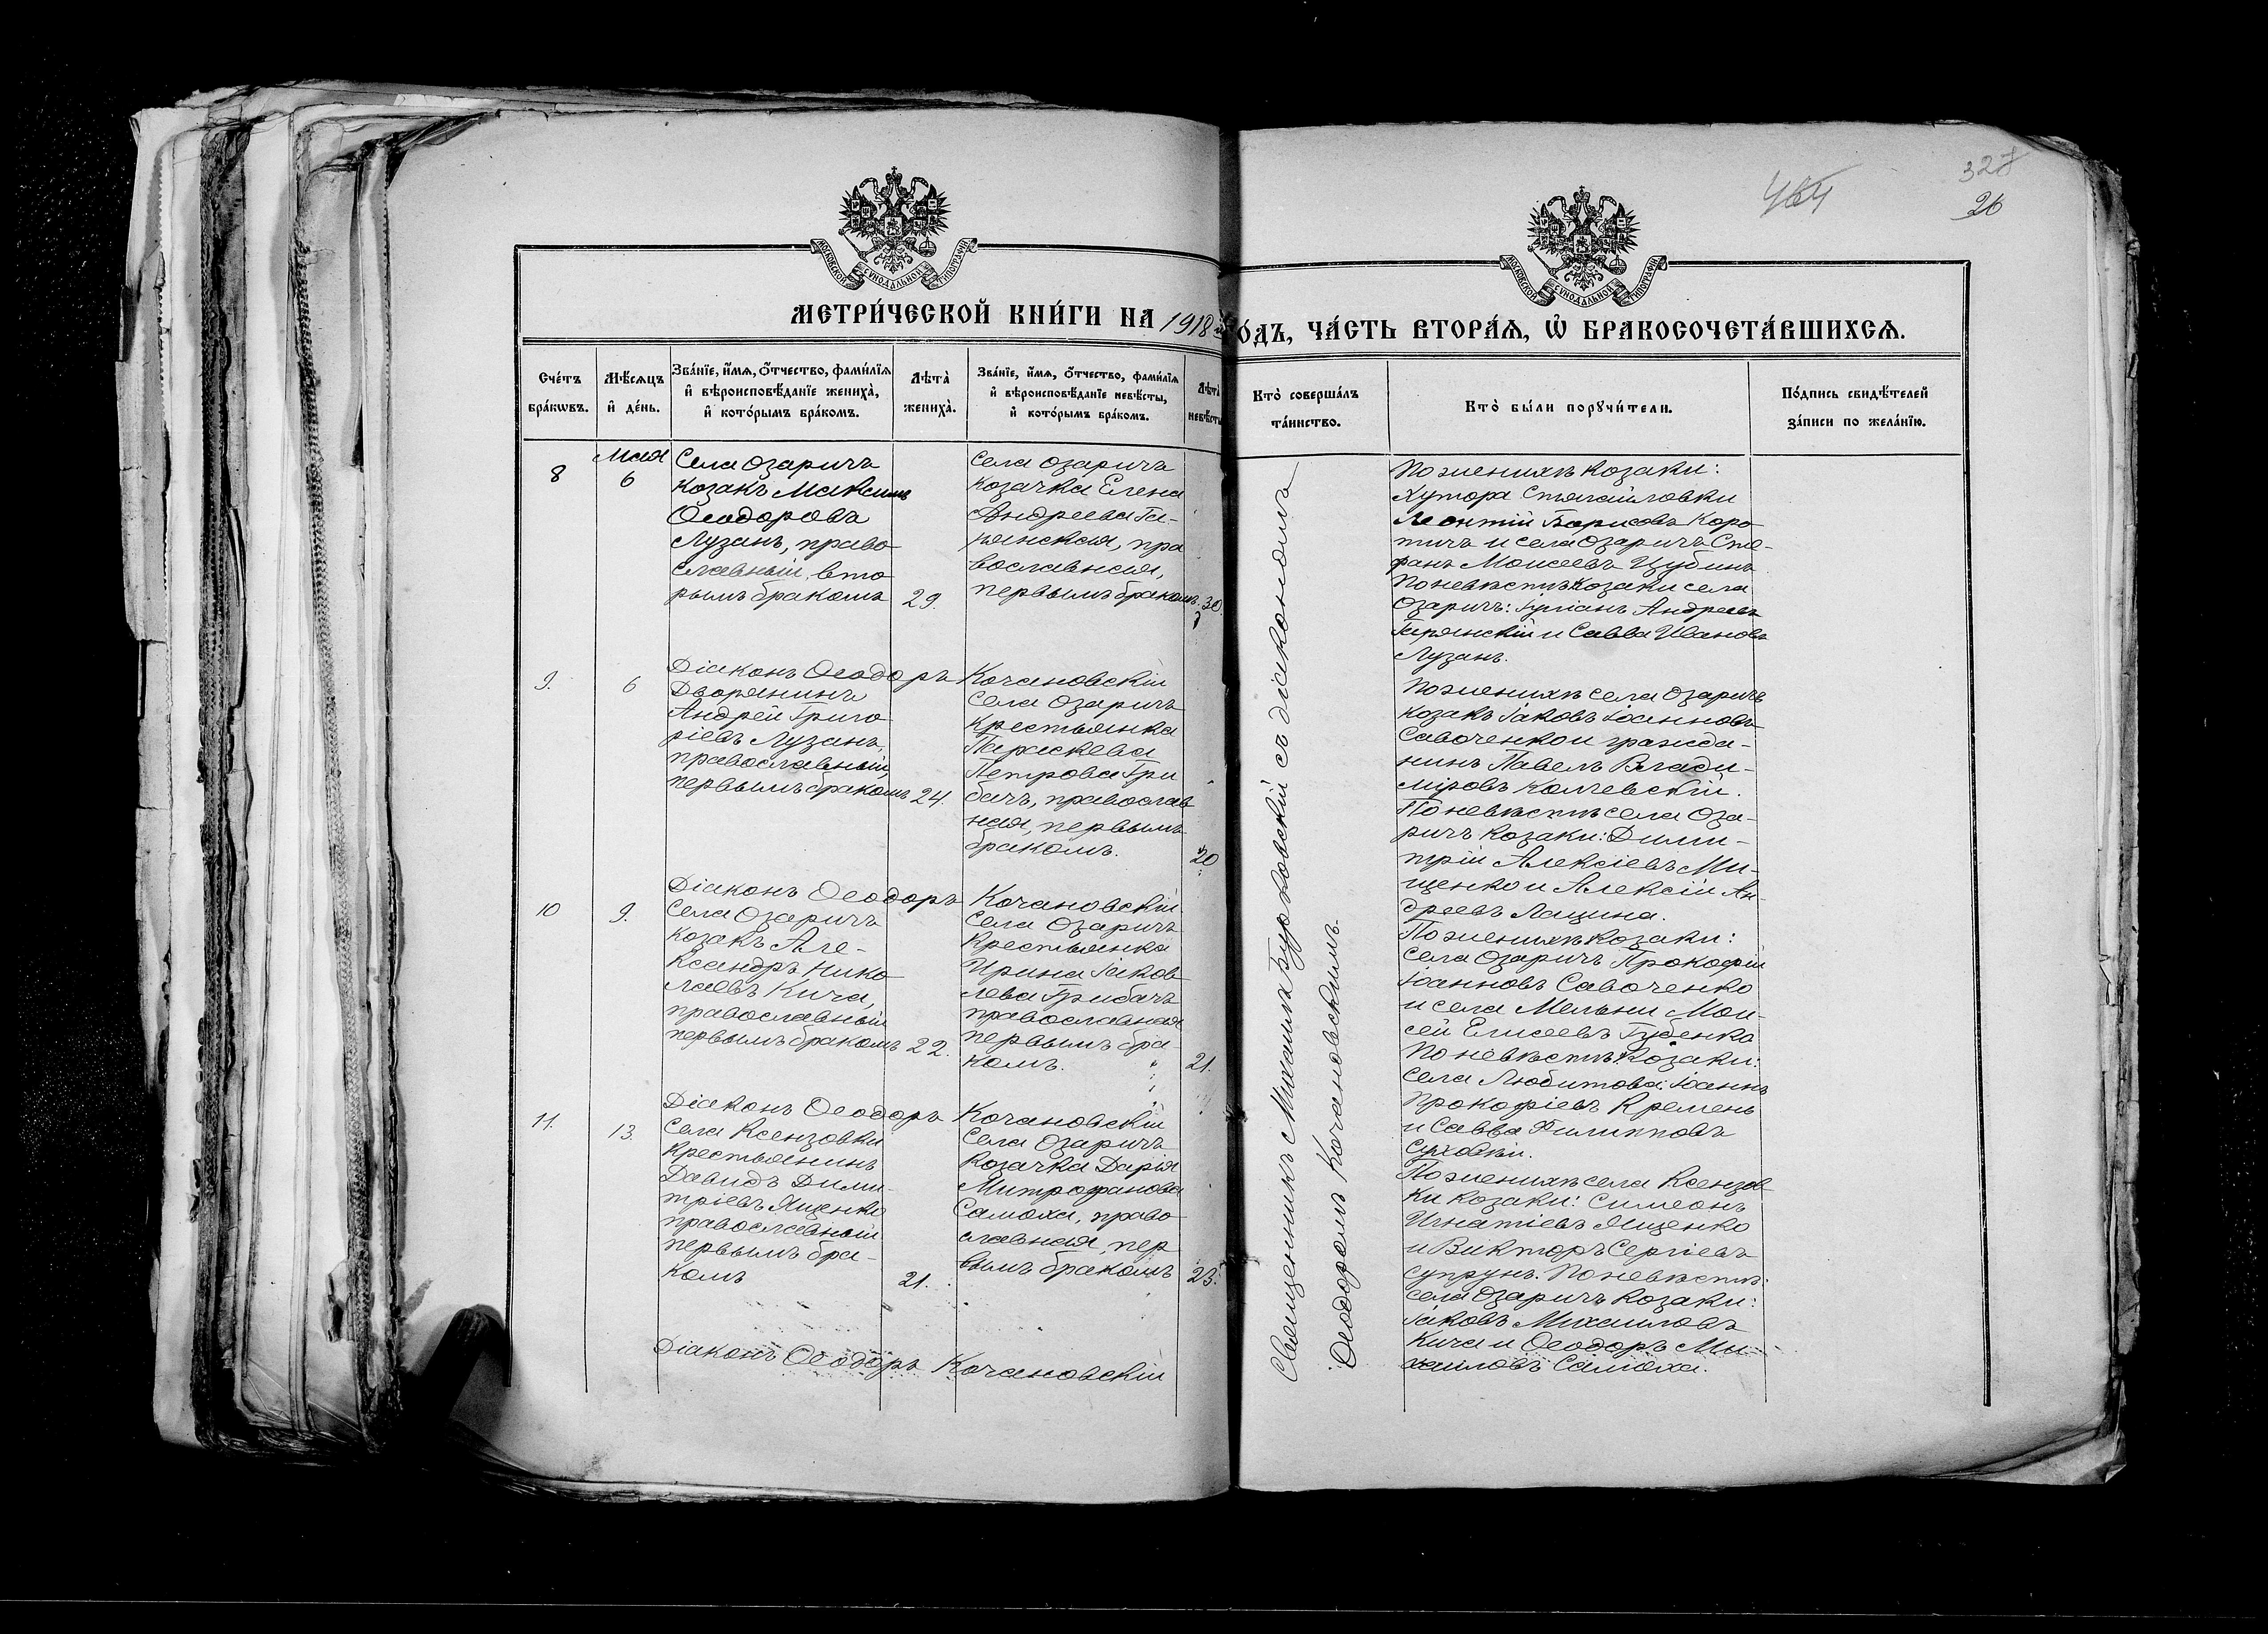 464
327
26
МОСКОВСКОЙ СУНОДАЛЬНОЙ ТИПОГРАФІИ
МОСКОВСКОЙ СУНОДАЛЬНОЙ ТИПОГРАФІИ
МЕТРИ́ЧЕСКОЙ КНИ́ГИ НА 1918
О́ДЪ, ЧА́СТЬ ВТОРА́Я, Ѽ БРАКОСОЧЕТА́ВШИХСѦ.
Сче́тъ бра́кѡвъ.
Мѣ́сѧцъ и҆ де́нь.
Зва́нїе, и҆́мѧ, ѻ҆́тчество, фами́лїѧ
и҆ вѣроисповѣ́данїе жениха̀,
и҆ кото́рымъ бра́комъ.
Лѣ́та̀ жениха̀.
Зва́нїе, и҆́мѧ, ѻ҆́тчество, фами́лїѧ
и҆ вѣроисповѣ́данїе невѣ́сты,
и҆ кото́рымъ бра́комъ.
Лѣ́та̀ невѣ́сты
Кто̀ соверша́лъ
та́инство.
Кто̀ бы́ли порꙋчи́тели.
По́дпись свидѣ́телей
за́писи по жела́нїю.
8
Мая
6
Села Озаричъ
козакъ Максимъ
Ѳеодоровъ
Лузанъ, право-
славный, вто-
рымъ бракомъ
29.
Села Озаричъ
козачка Елена
Андреева Га-
рянская, пра
вославная,
первымъ бракомъ.
30.
По женихѣ козаки:
Хутора
Леонтій Борисовъ Коро-
тичъ и села Озаричъ Сте-
фанъ Моисеевъ Цубинъ
По невѣстѣ козаки села
Озаричъ: Іуліанъ Андреевъ
Гарянскій и Савва Ивановъ
Лузанъ.
Діаконъ Ѳеодоръ Кочановскій
9.
6
Дворянинъ
Андрей Григо-
ріевъ Лузанъ,
православный,
первымъ бракомъ
24.
Села Озаричъ
крестьянка
Параскева
Петрова Гри
бачъ, православ
ная, первымъ
бракомъ.
20
По женихѣ села Озаричъ
козакъ Іаковъ Іоанновъ
Савоченко и гражда-
нинъ Павелъ Влади-
міровъ Калчевскій.
По невѣстѣ села Оза-
ричъ козаки: Дими-
трій Алексіевъ Ми-
щенко и Алексій Ан-
дреевъ Лащина.
Діаконъ Ѳеодоръ Кочановскій
10
9.
Села Озаричъ
козакъ Але-
ксандръ Нико
лаевъ Кича,
православный
первымъ бракомъ
22.
Села Озаричъ
крестьянка
Ирина Іаков
лева Грибачъ
православная
первымъ бра-
комъ.
21.
По женихѣ козаки:
села Озаричъ Прокофій
Іоанновъ Савоченко
и села Мельни Мои-
сей Елисеевъ Губенко
По невѣстѣ козаки:
села Любитова: Іоаннъ
Прокофіевъ Кремень
и Савва Филипповъ
Суховѣй.
Діаконъ Ѳеодоръ Кочановскій
11.
13.
Села Ксензовки
крестьянинъ
Давидъ Дими-
тріевъ Ященко
православный
первымъ бра-
комъ
21.
Села Озаричъ
козачка Дарія
Митрофанова
Самоха, право
славная, пер
вымъ бракомъ
23.
По женихѣ села Ксензов
ки козаки: Симеонъ
Игнатіевъ Ященко
и Викторъ Сергіевъ
Супрунъ. По невѣстѣ:
села Озаричъ козаки:
Іаковъ Михаиловъ
Кича и Ѳеодоръ Ми-
хаиловъ Самоха.
Діаконъ Ѳеодоръ Кочановскій
Священникъ Михаилъ Буяковскій съ діакономъ
Ѳеодоромъ Кочановскимъ.